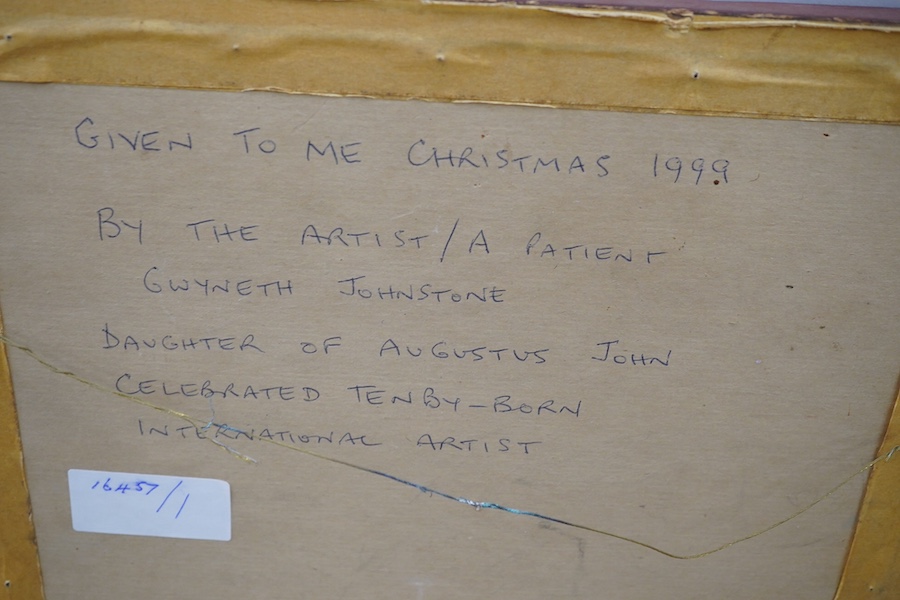 GIVEN TO ME CHRISTMAS 1999
BY THE ARTIST/A PATIENT
GWYNETH JOHNSTONE
DAUGHTER OF AUGUSTUS JOHN
CELEBRATED TENBY-BORN
INTERNATIONAL ARTIST
16457/1